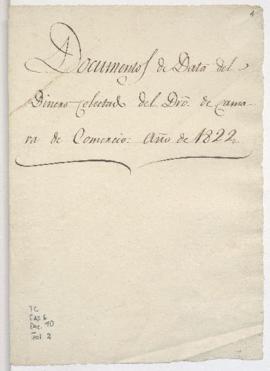 Documentos de Data del
Dinero colectado del Dro. de Cama-
ra de Comercio: Año de 1822.
TC
Caj 6
Doc. 10
Fol. 2